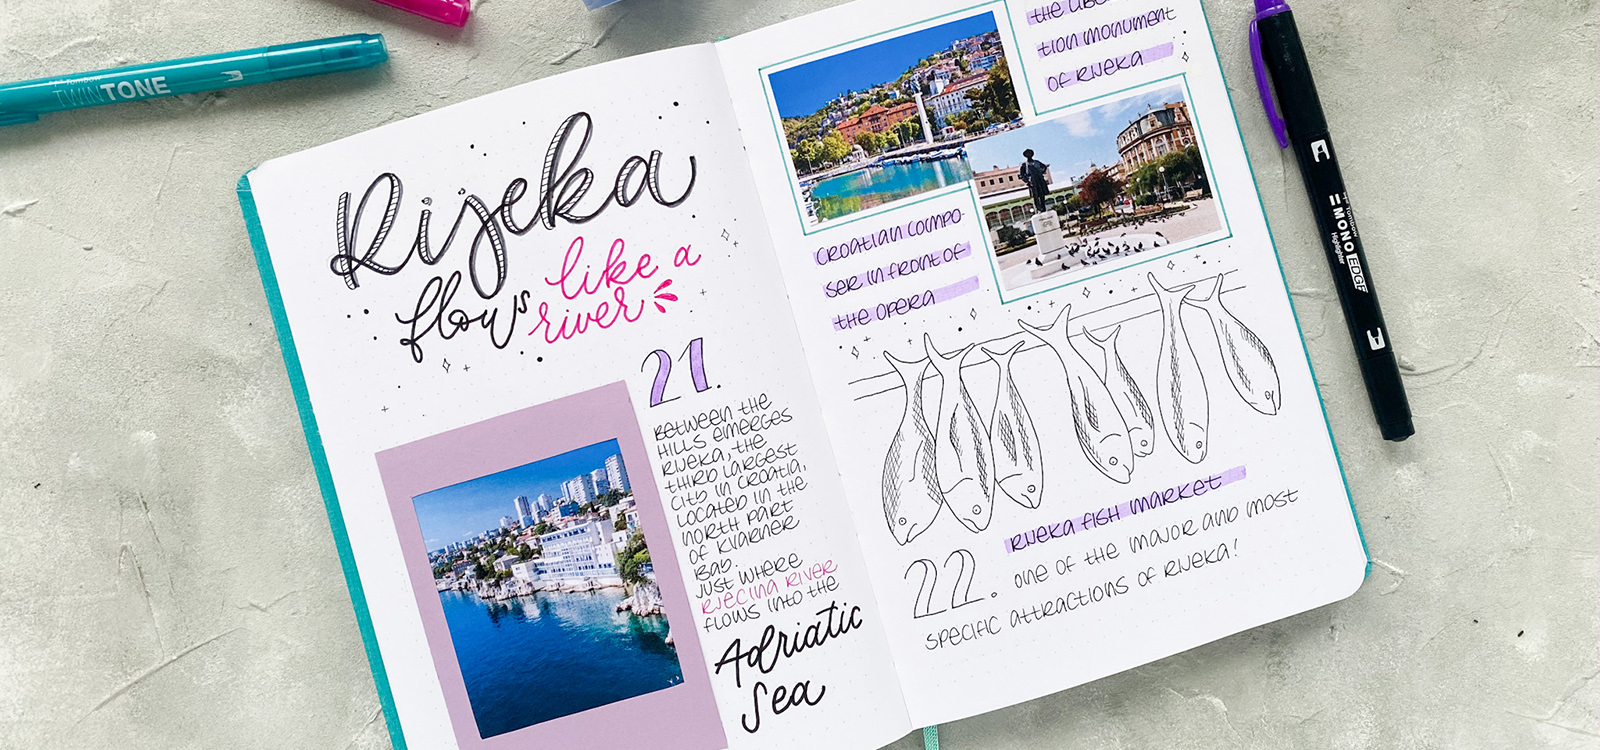 Tombow
TWINTONE
Rijeka
flows like a
river
21.
BETWEEN THE
HILLS EMERGES
RIJEKA, THE
THIRD LARGEST
CITY IN CROATIA,
LOCATED IN THE
NORTH PART
OF KVARNER
BAY.
JUST WHERE
RJEČINA RIVER
FLOWS INTO THE
Adriatic
Sea
THE LIBERA-
TION MONUMENT
OF RIJEKA
CROATIAN COMPO-
SER IN FRONT OF
THE OPERA
RIJEKA FISH MARKET
22. ONE OF THE MAJOR AND MOST
SPECIFIC ATTRACTIONS OF RIJEKA!
Tombow
MONO EDGE
Highlighter